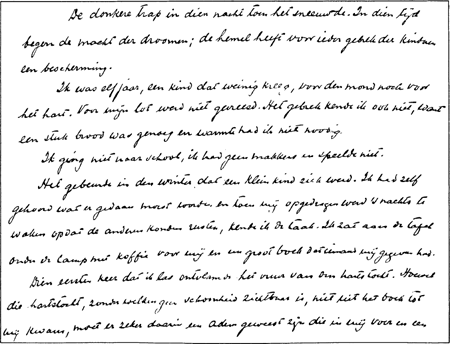 De donkere trap in dien nacht toen het sneeuwde. In dien tijd
begon de macht der droomen; de hemel heeft voor ieder gebrek der kinderen
een bescherming.
Ik was elf jaar, een kind dat weinig kreeg, voor den mond noch voor
het hart. Voor mijn lot werd niet gevreesd. Het gebrek kende ik ook niet, want
een stuk brood was genoeg en warmte had ik niet noodig.
Ik ging niet naar school, ik had geen makkers en speelde niet.
Het gebeurde in den winter, dat een klein kind ziek werd. Ik had zelf
gehoord wat er gedaan moest worden en toen mij opgedragen werd 's nachts te
waken opdat de anderen konden rusten, kende ik de taak. Ik zat aan de tafel
onder de lamp met koffie voor mij en een groot boek dat iemand mij gegeven had.
Dien eersten keer dat ik las ontvlamde het vuur van den hartstocht. Hoewel
die hartstocht, zonder welken geen schoonheid zichtbaar is, niet uit het boek tot
mij kwam, moet er zeker daarin een adem geweest zijn die in mij voor en een